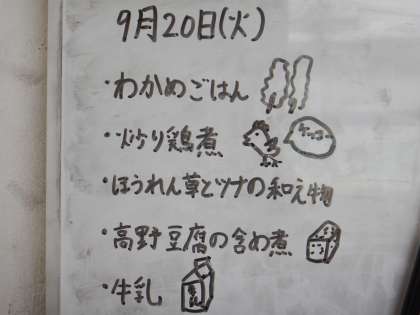 9月20日(火)
・わかめごはん
・炒り鶏煮
・ほうれん草とツナの和え物
・高野豆腐の含め煮
・牛乳